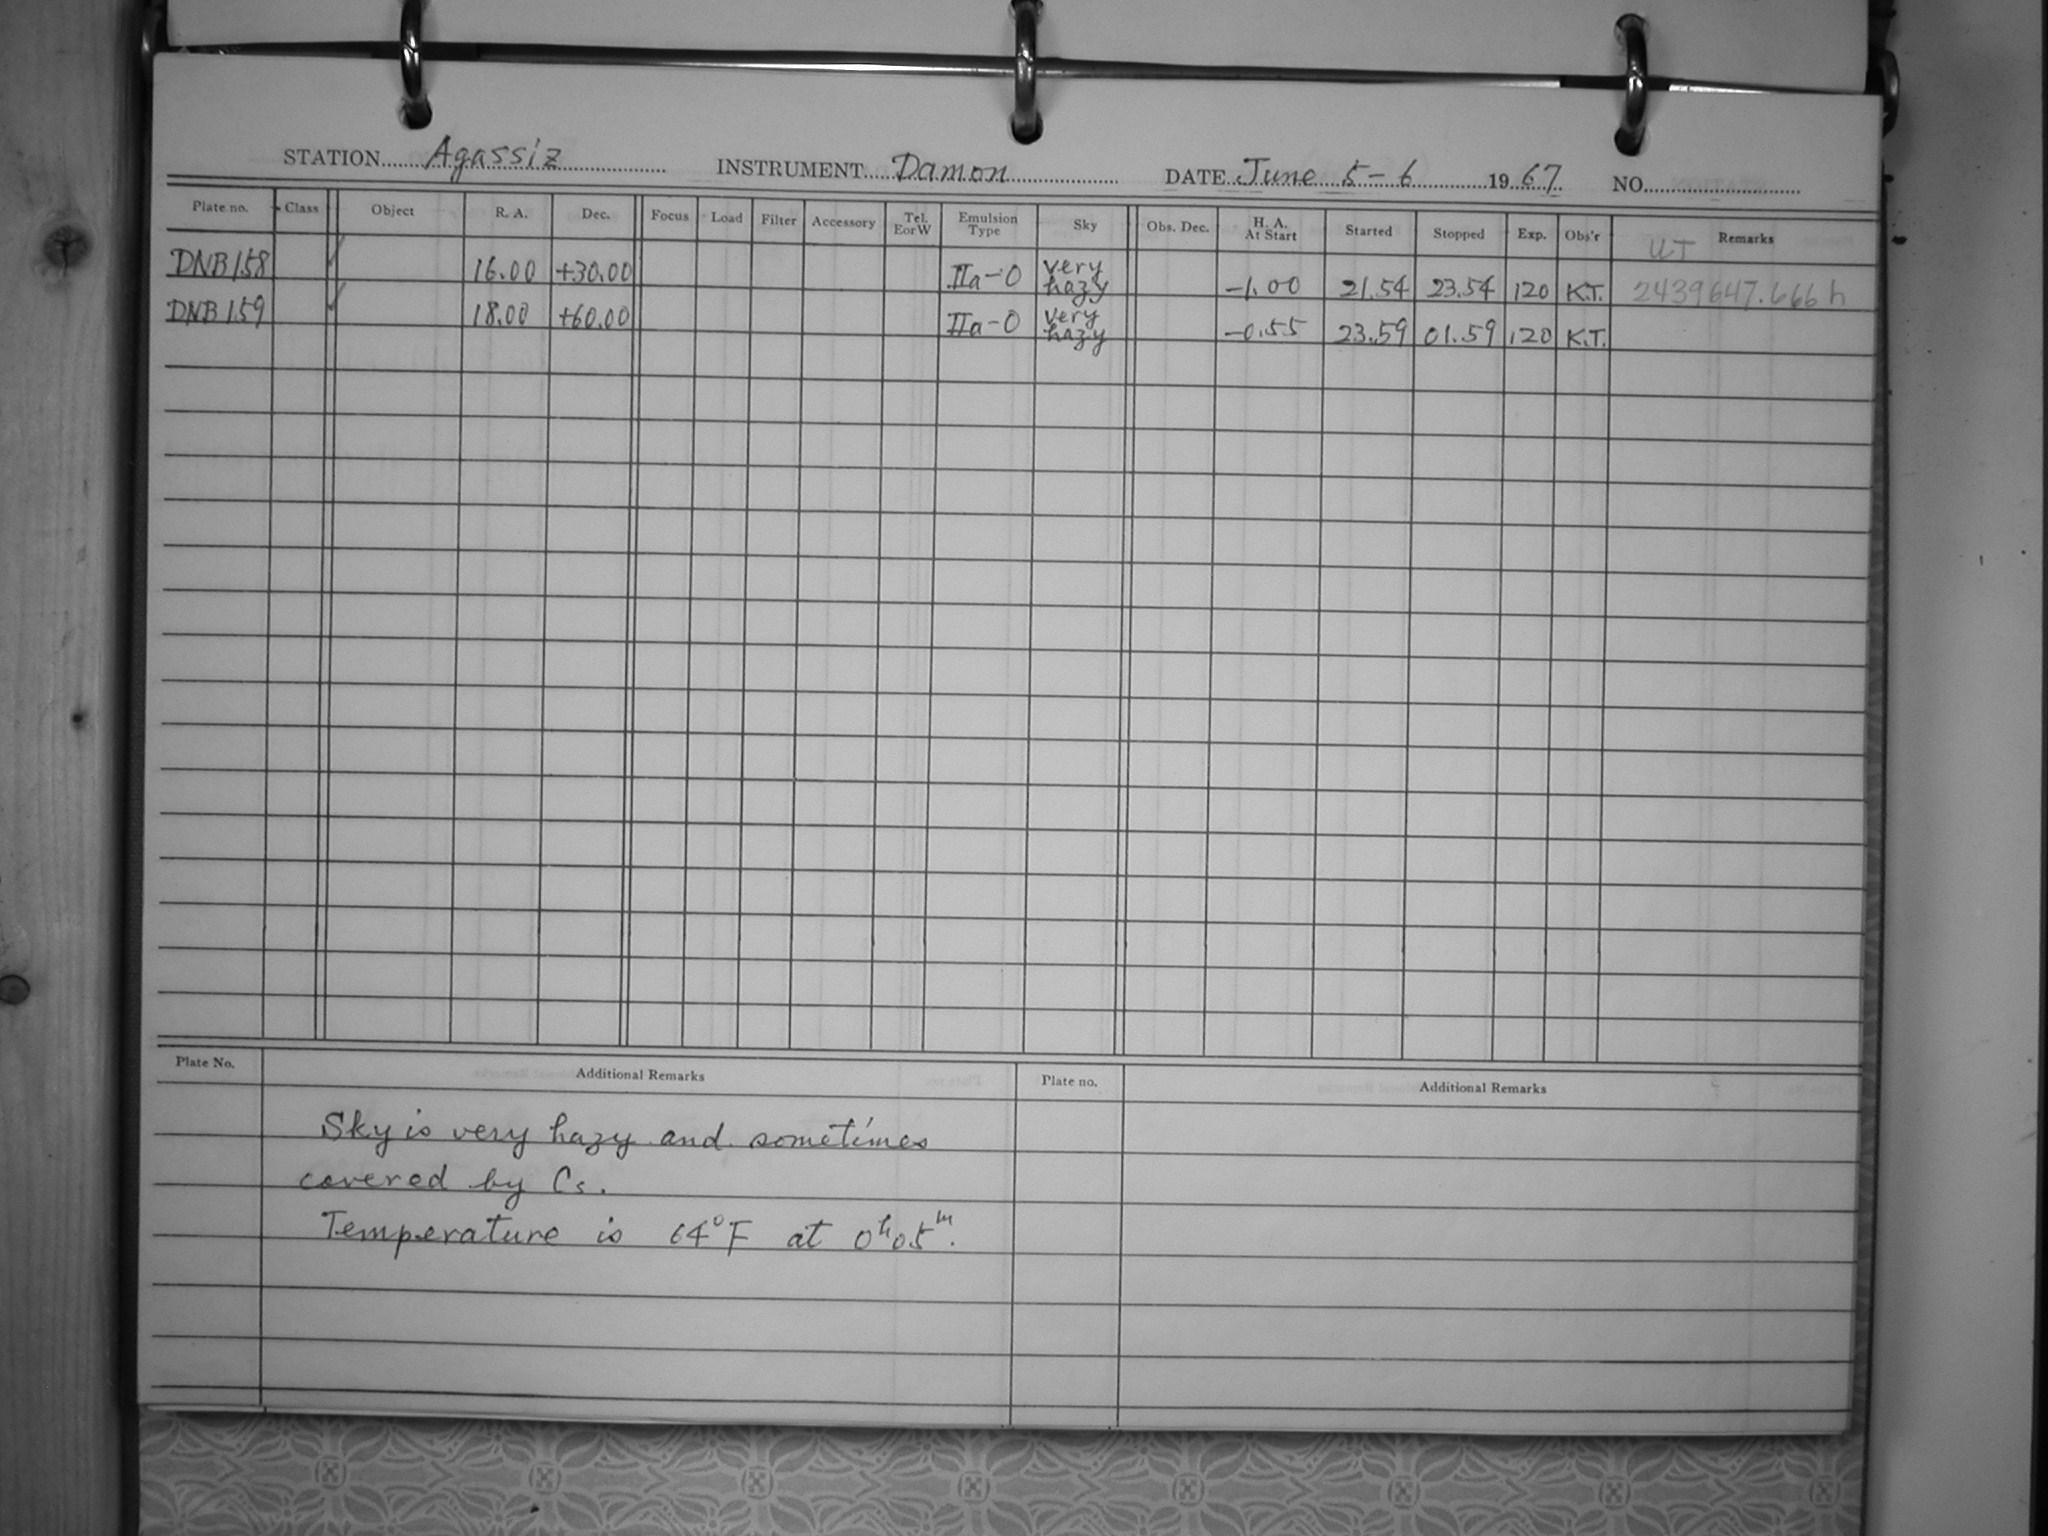 STATION Agassiz INSTRUMENT Damon DATE June 5-6 1967 NO.
Plate no. Class Object R. A. Dec. Focus Load Filter Accessory Tel. E or W Emulsion Type Sky Obs. Dec. H. A. At Start Started Stopped Exp. Obs'r Remarks
UT
DNB158 16.00 +30.00 IIa-O very hazy -1.00 21.54 23.54 120 K.T. 2439647.666 h
DNB159 18.00 +60.00 IIa-O very hazy -0.55 23.59 01.59 120 K.T.
Plate No. Additional Remarks Plate no. Additional Remarks
Sky is very hazy and sometimes
covered by Cs.
Temperature is 64°F at 0h05m.